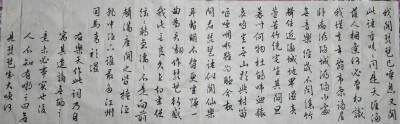 我聞琵琶已嘆息又聞
此語重唧唧同是天涯淪
落人相逢何必曾相識
我從去年辭帝京謫居
臥病潯陽城潯陽
無音樂終歲不聞絲竹
聲住近湓城地卑濕黃
蘆苦竹繞宅生其間旦
暮聞何物杜鵑啼血猿
哀鳴豈無山歌與村笛
嘔啞嘲哳難為聽今夜
聞君琵琶語如聽仙樂
耳暫明莫辭更坐彈一
曲為君翻作琵琶行感
我此言良久立卻坐促
絃絃轉急淒淒不是向前
聲滿座重聞皆掩泣
座中泣下誰最多江州
司馬青衫濕
右樂天作此詞乃自
寫其遷謫
人不知有
是琵琶